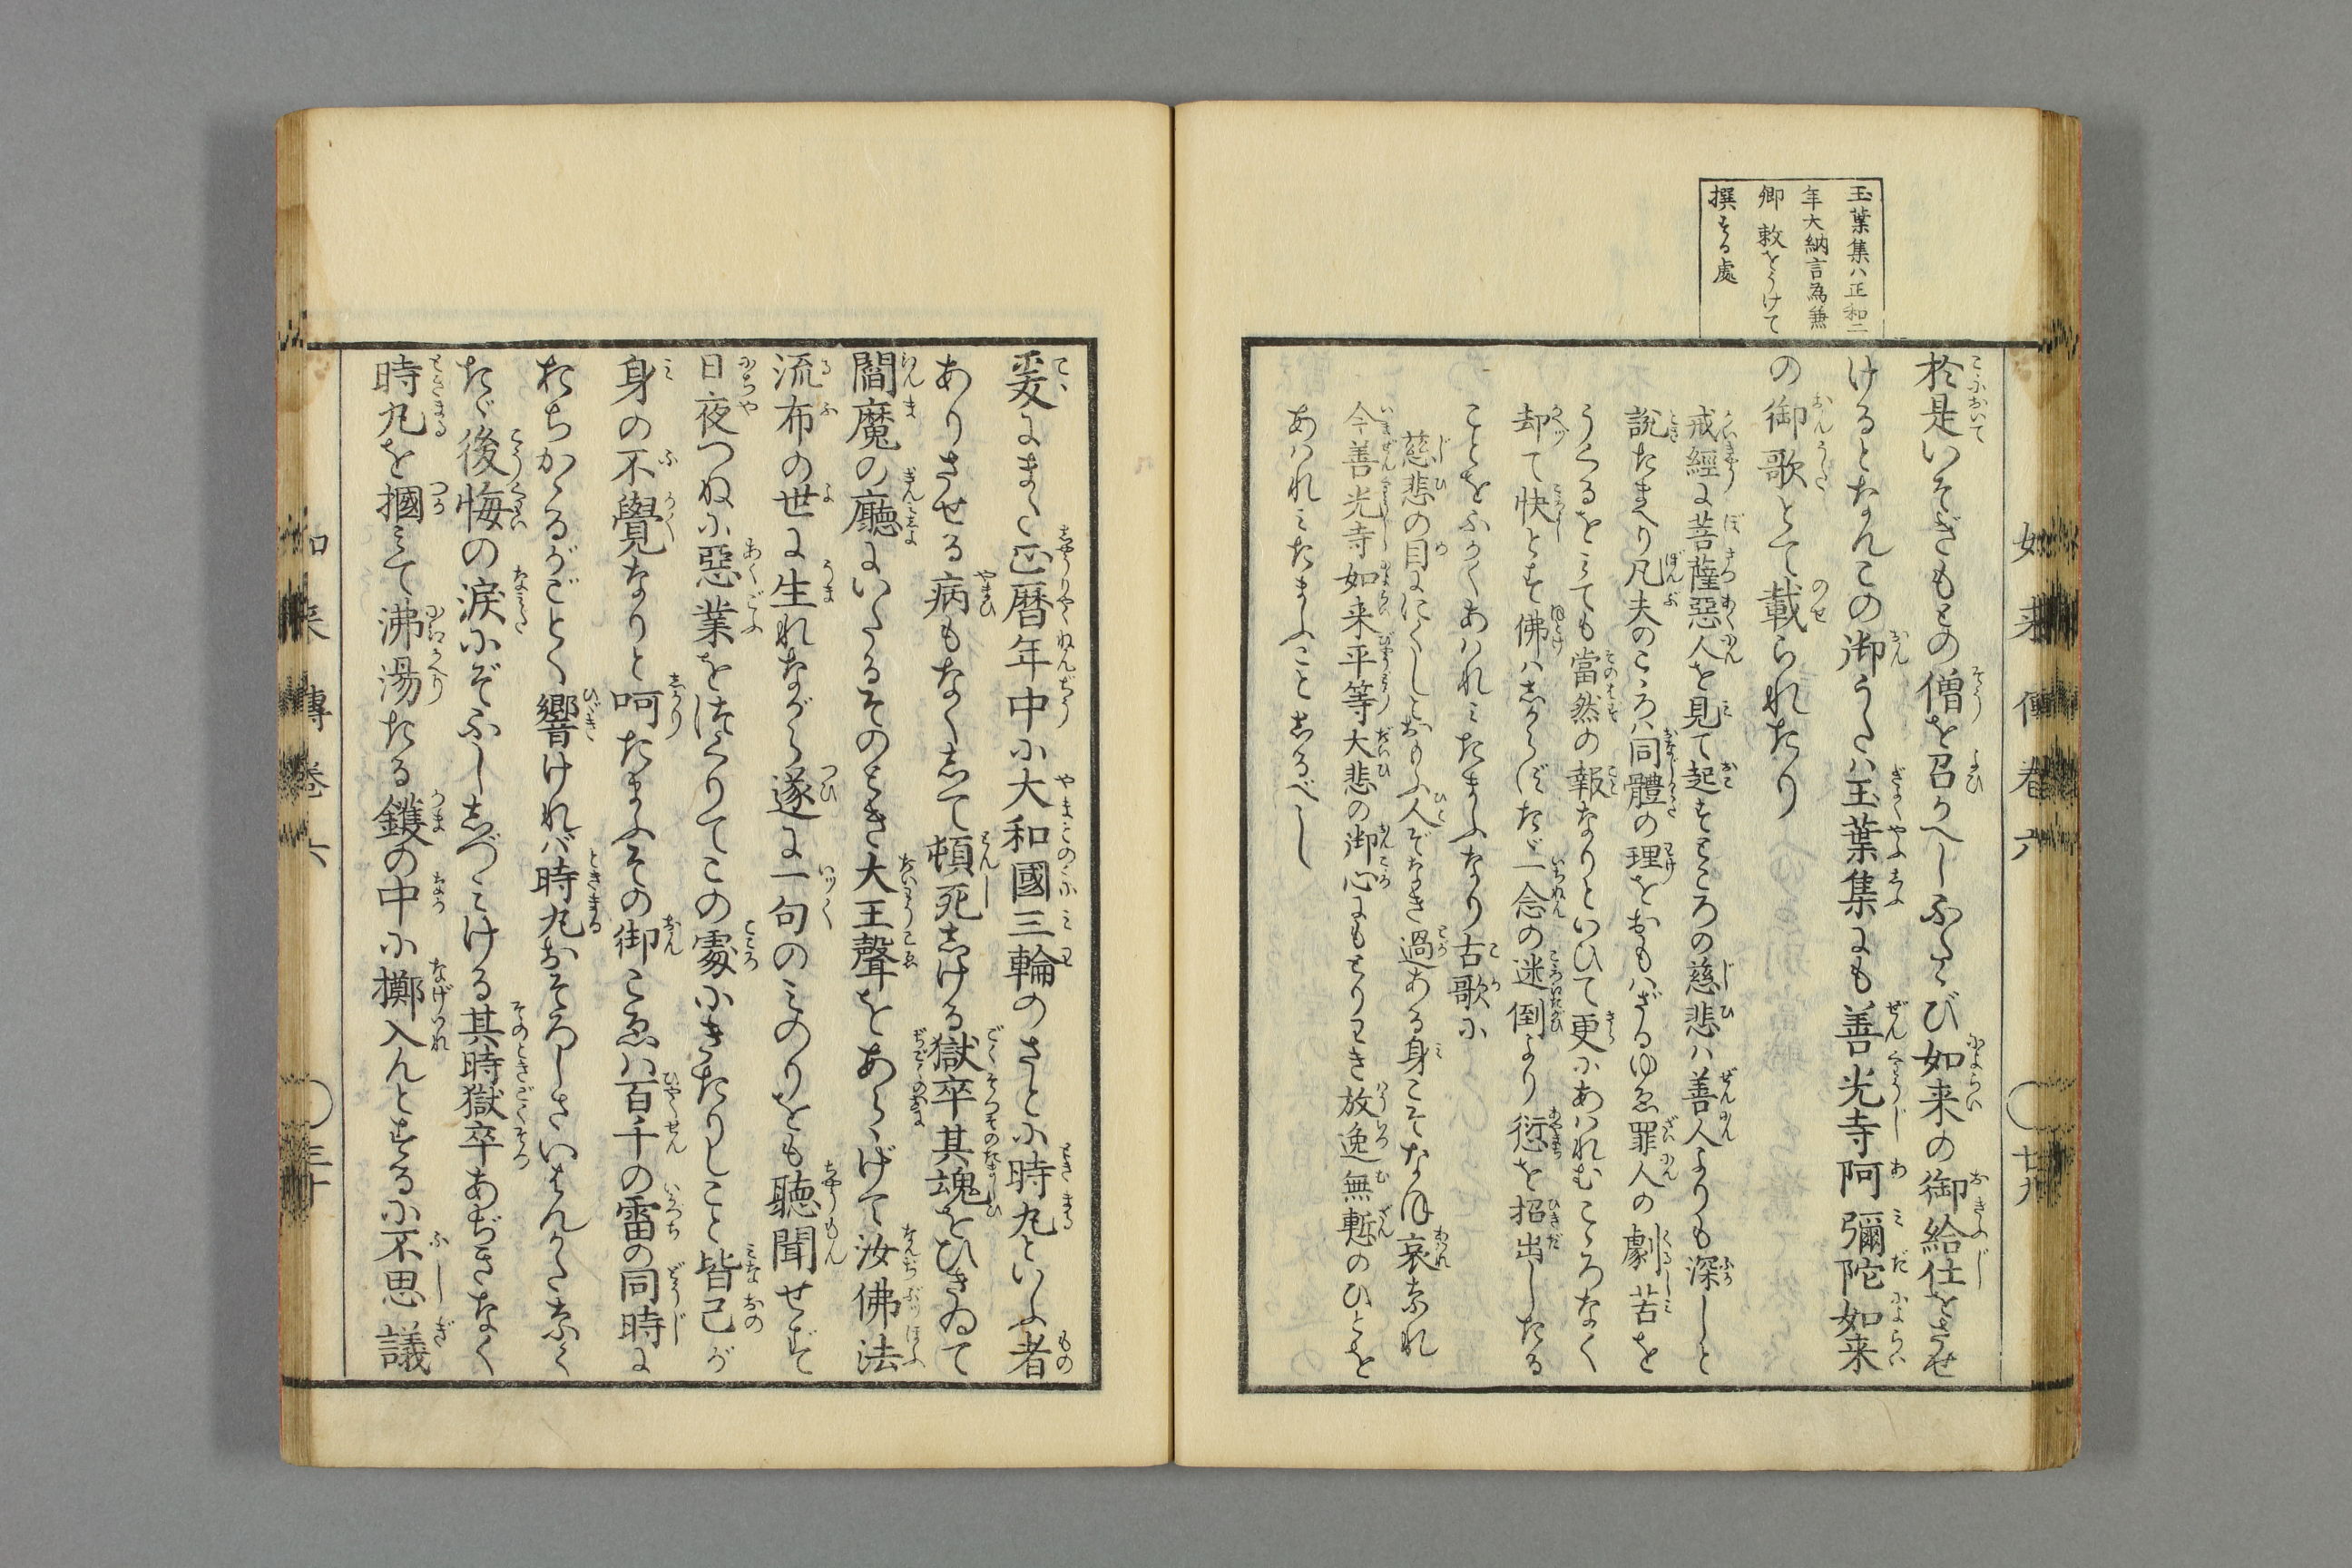 玉葉集ハ正和二
年大納言為兼
卿 敕をうけて
撰する處
如来傳巻六
廿九
於是いそぎもとの僧を召かへしふたゝび如来の御給仕をさせ
けるとなんこの御うたハ玉葉集にも善光寺阿彌陀如来
の御歌とて載られたり
戒經に菩薩惡人を見て起すところの慈悲ハ善人よりも深しと
説たまへり凡夫のこゝろハ同體の理をおもハざるゆゑ罪人の劇苦を
うくるをミても當然の報なりといひて更にあハれむこゝろなく
却て快とす佛ハしからずたゞ一念の迷倒より愆を招出したる
ことをふかくあハれミたまふなり古歌に
慈悲の目ににくしとおもふ人ぞなき過ある身こそなほ哀なれ
今善光寺如来平等大悲の御心にもとりわき放逸無慙のひとを
あハれミたまふことしるべし
爰にまた正暦年中に大和國三輪のさとに時丸といふ者
ありさせる病もなくして頓死しける獄卒其魂をひきゐて
閻魔の廳にいたるそのとき大王聲をあらゝげて汝佛法
流布の世に生れながら遂に一句のミのりをも聽聞せず
日夜つねに惡業をつくりてこの處にきたりしこと皆己が
身の不覺なりと呵たまふその御こゑハ百千の雷の同時に
おちかゝるがごとく響けれバ時丸おそろしさいはんかたなく
たゞ後悔の涙にぞふししづミける其時獄卒あぢきなく
時丸を摑ミて沸湯たる鑊の中に擲入んとするに不思議
如来傳巻六
三十